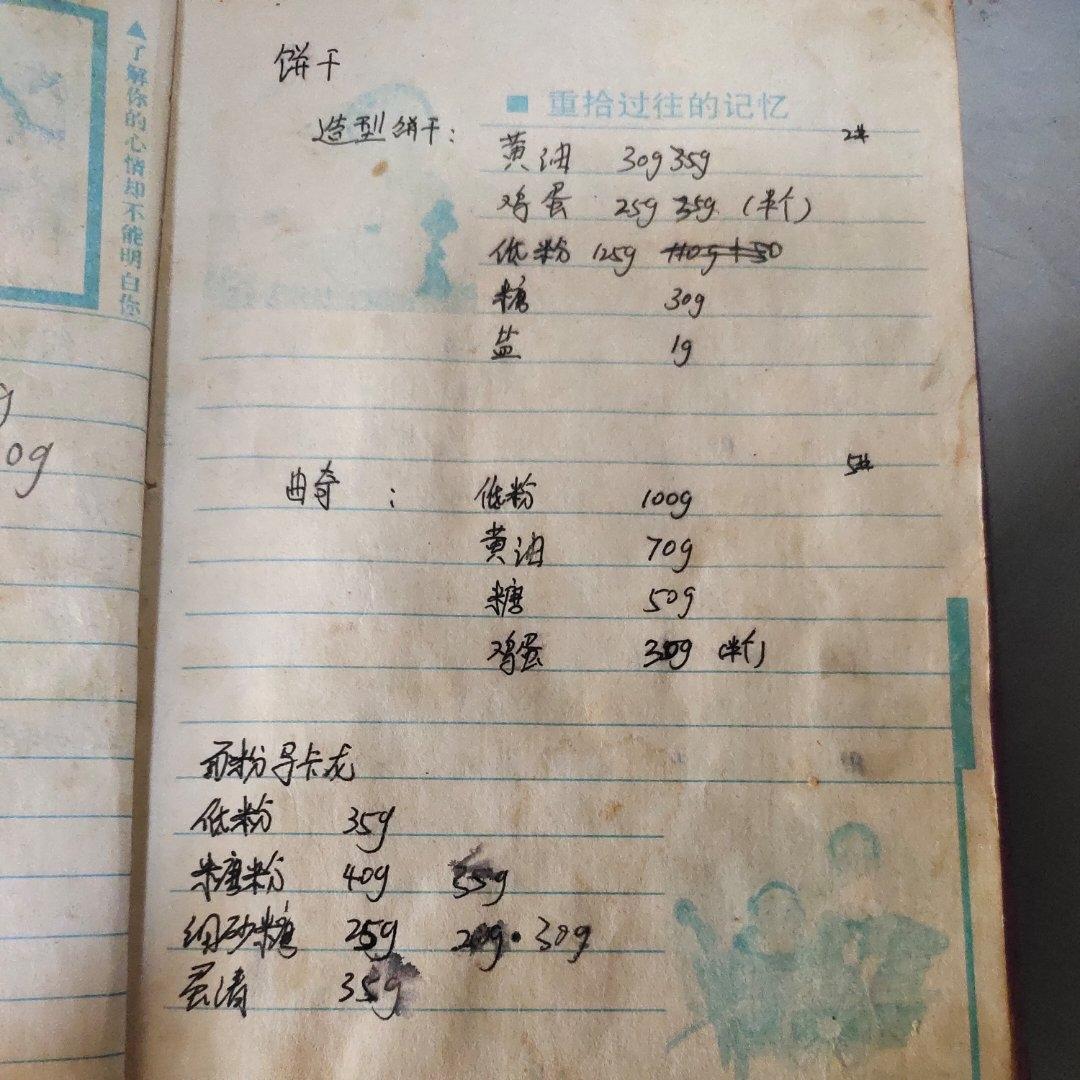 ▲了解你的心情却不能明白你
g
0g
饼干
■ 重拾过往的记忆
造型饼干: 2#
黄油 30g 35g
鸡蛋 25g 35g (半个)
低粉 125g
糖 30g
盐 1g
5#
曲奇: 低粉 100g
黄油 70g
糖 50g
鸡蛋 30g (半个)
面粉马卡龙
低粉 35g
糖粉 40g 35g
细砂糖 25g 20g·30g
蛋清 35g